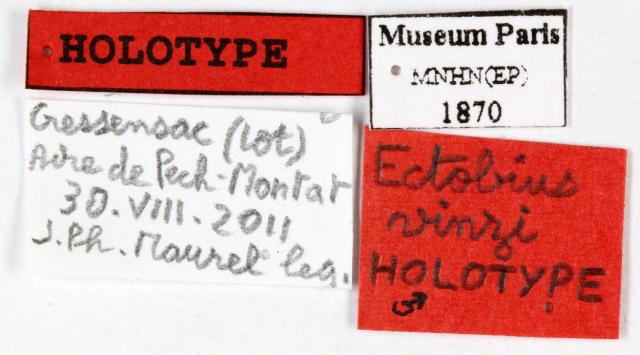 HOLOTYPE
Museum Paris
MNHN(EP)
1870
Gressensac (Lot)
Aire de Pech-Montat
30.VIII.2011
J.Ph. Maurel leg.
Ectobius
vinzi
HOLOTYPE
♂